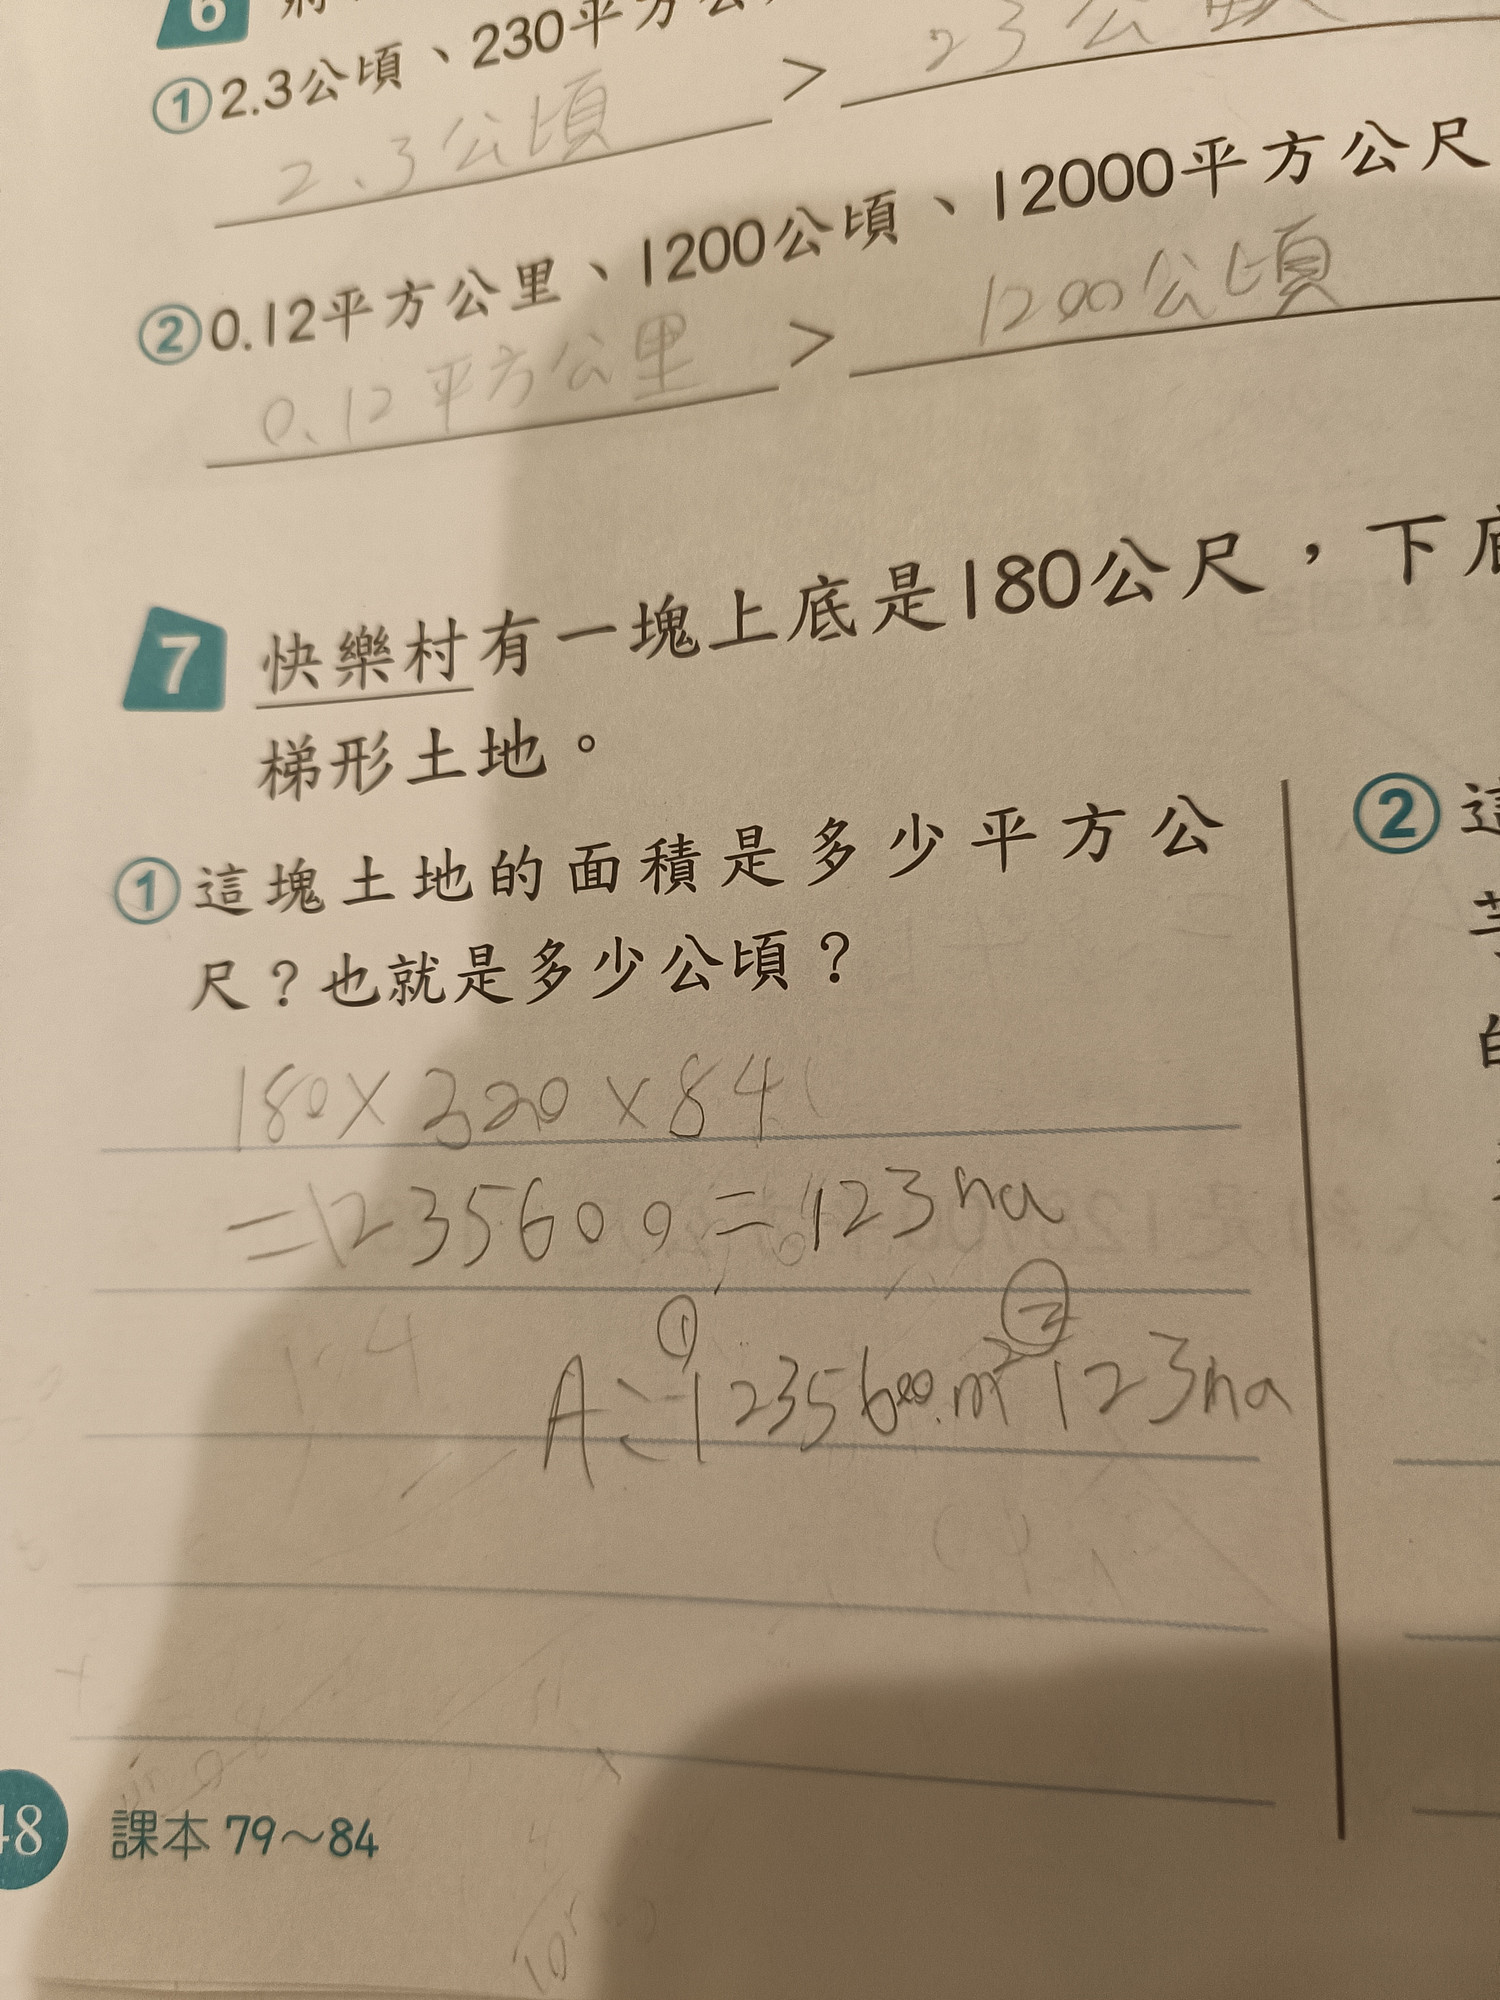 6
①2.3公頃、230平方公
2.3公頃 > 23公
②0.12平方公里、1200公頃、12000平方公尺
0.12平方公里 > 1200公頃
7 快樂村有一塊上底是180公尺,下底
梯形土地。
①這塊土地的面積是多少平方公
尺?也就是多少公頃?
180×320×84
=1235600=123ha
A:①1235600m² ②123ha
②這
的
48 課本 79~84